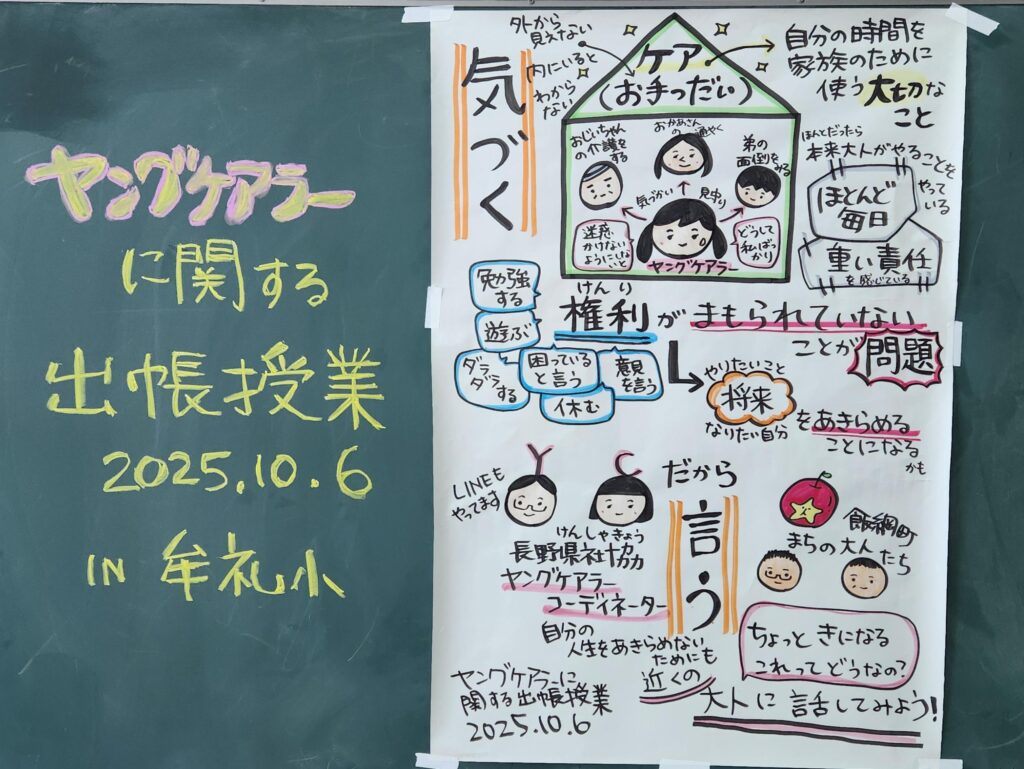 ヤングケアラー
に関する
出帳授業
2025.10.6
IN 牟礼小
気づく
外から
見えない
内にいると
わから
ない
ケア
(お手つだい)
自分の時間を
家族のために
使う大切な
こと
おじいちゃん
の介護を
する
おかあさん
の
弟の
面倒をみる
気づかい
見守り
迷惑
かけない
ようにしないと
どうして
私ばっかり
ヤングケアラー
ほんとだったら
本来大人がやることを
やって
いる
ほとんど
毎日
重い責任
を感じている
勉強
する
遊ぶ
ダラ
ダラ
する
困っている
と言う
休む
意見
を言う
けんり
権利が まもられていない
ことが 問題
やりたいこと
将来
なりたい自分
をあきらめる
ことになる
かも
LINEも
やってます
けんしゃきょう
長野県社協
ヤングケアラー
コーディネーター
だから
言う
飯綱町
まちの大人たち
自分の
人生をあきらめない
ためにも
近くの
大人に 話してみよう!
ちょっと きになる
これって どうなの?
ヤングケアラーに
関する出帳授業
2025.10.6